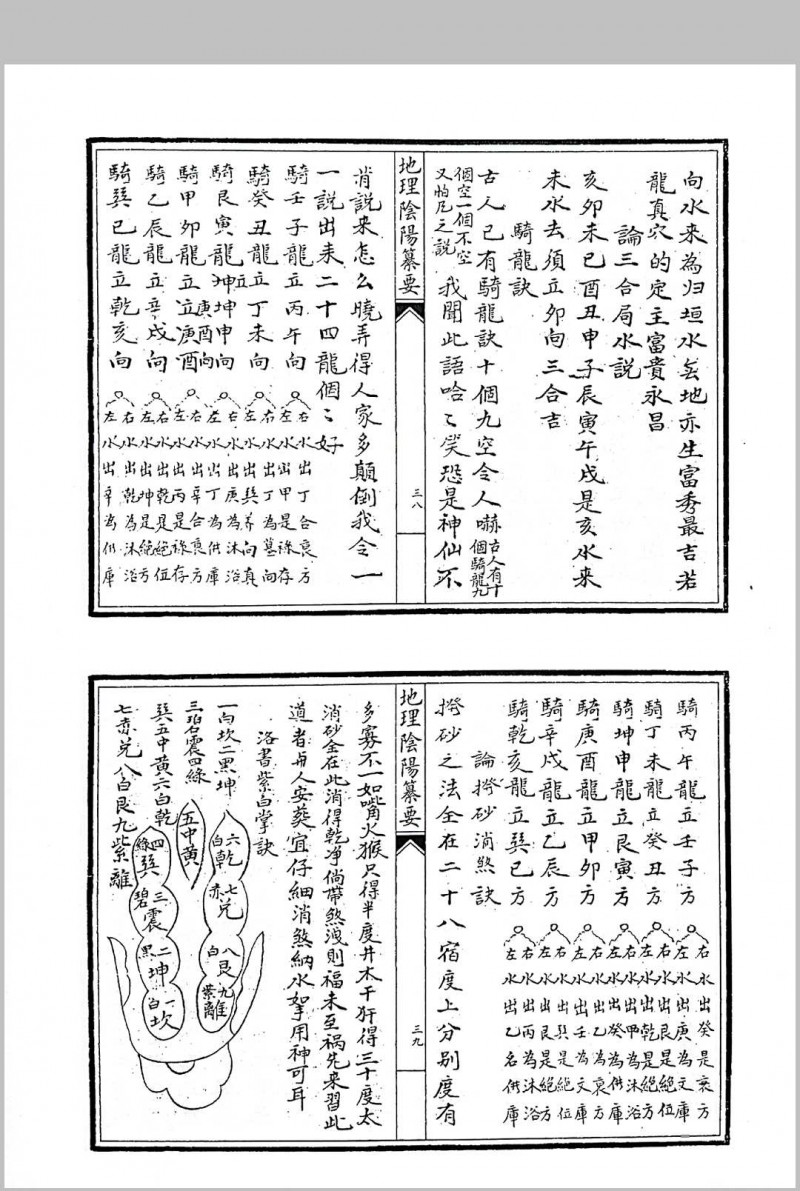 向水来為归垣水兹地亦生富秀最吉若
龍真穴的定主富貴永昌
論三合局水説
亥卯未巳酉丑申子辰寅午戌是亥水来
未水去須立卯向三合吉
騎龍訣
古人已有騎龍訣十個九空令人嚇古人有十個騎龍九
個空一個不空又怕凡之説我聞此語哈〻笑恐是神仙不
地理陰陽纂要
三八
肖説来怎么曉弄得人家多顛倒我今一
一説出来二十四龍個〻好
騎壬子龍立丙午向
騎癸丑龍立丁未向
騎艮寅龍立坤申向
騎甲卯龍立庚酉向
騎乙辰龍立辛戌向
騎巽巳龍立乾亥向
右水出丁合衰方
左水出甲是禄存
右水出丁為墓向
左水出巽养向真
右水出庚為沐浴
左水出丁為供庫
右水出辛合衰方
左水出丙是禄存
右水出乾是絕位
左水出坤是絕方
右水出乾為沐浴
左水出辛為供庫
騎丙午龍立壬子方
騎丁未龍立癸丑方
騎坤申龍立艮寅方
騎庚酉龍立甲卯方
騎辛戌龍立乙辰方
騎乾亥龍立巽巳方
右水出癸是衰方
左水出庚為文庫
右水出艮是絕位
左水出乾是絕方
右水出甲為沐浴
左水出癸為供庫
右水出乙為衰方
左水出壬為文庫
右水出巽是絕位
左水出艮是絕方
右水出丙為沐浴
左水出乙名供庫
論撥砂消煞訣
撥砂之法全在二十八宿度上分别度有
地理陰陽纂要
三九
多寡不一如嘴角火猴只得半度井木干犴得三十度太
消砂全在此消得乾净倘带煞洩則福未至禍先来習此
道者与人安葬宜仔細消煞納水如掌用神可耳
洛書紫白掌訣
一白坎二黑坤
三碧震四綠
巽五中黄六白乾
七赤兑八白艮九紫離
五中黄
六白乾
七赤兑
八白艮
九紫離
四綠巽
三碧震
二黑坤
一白坎